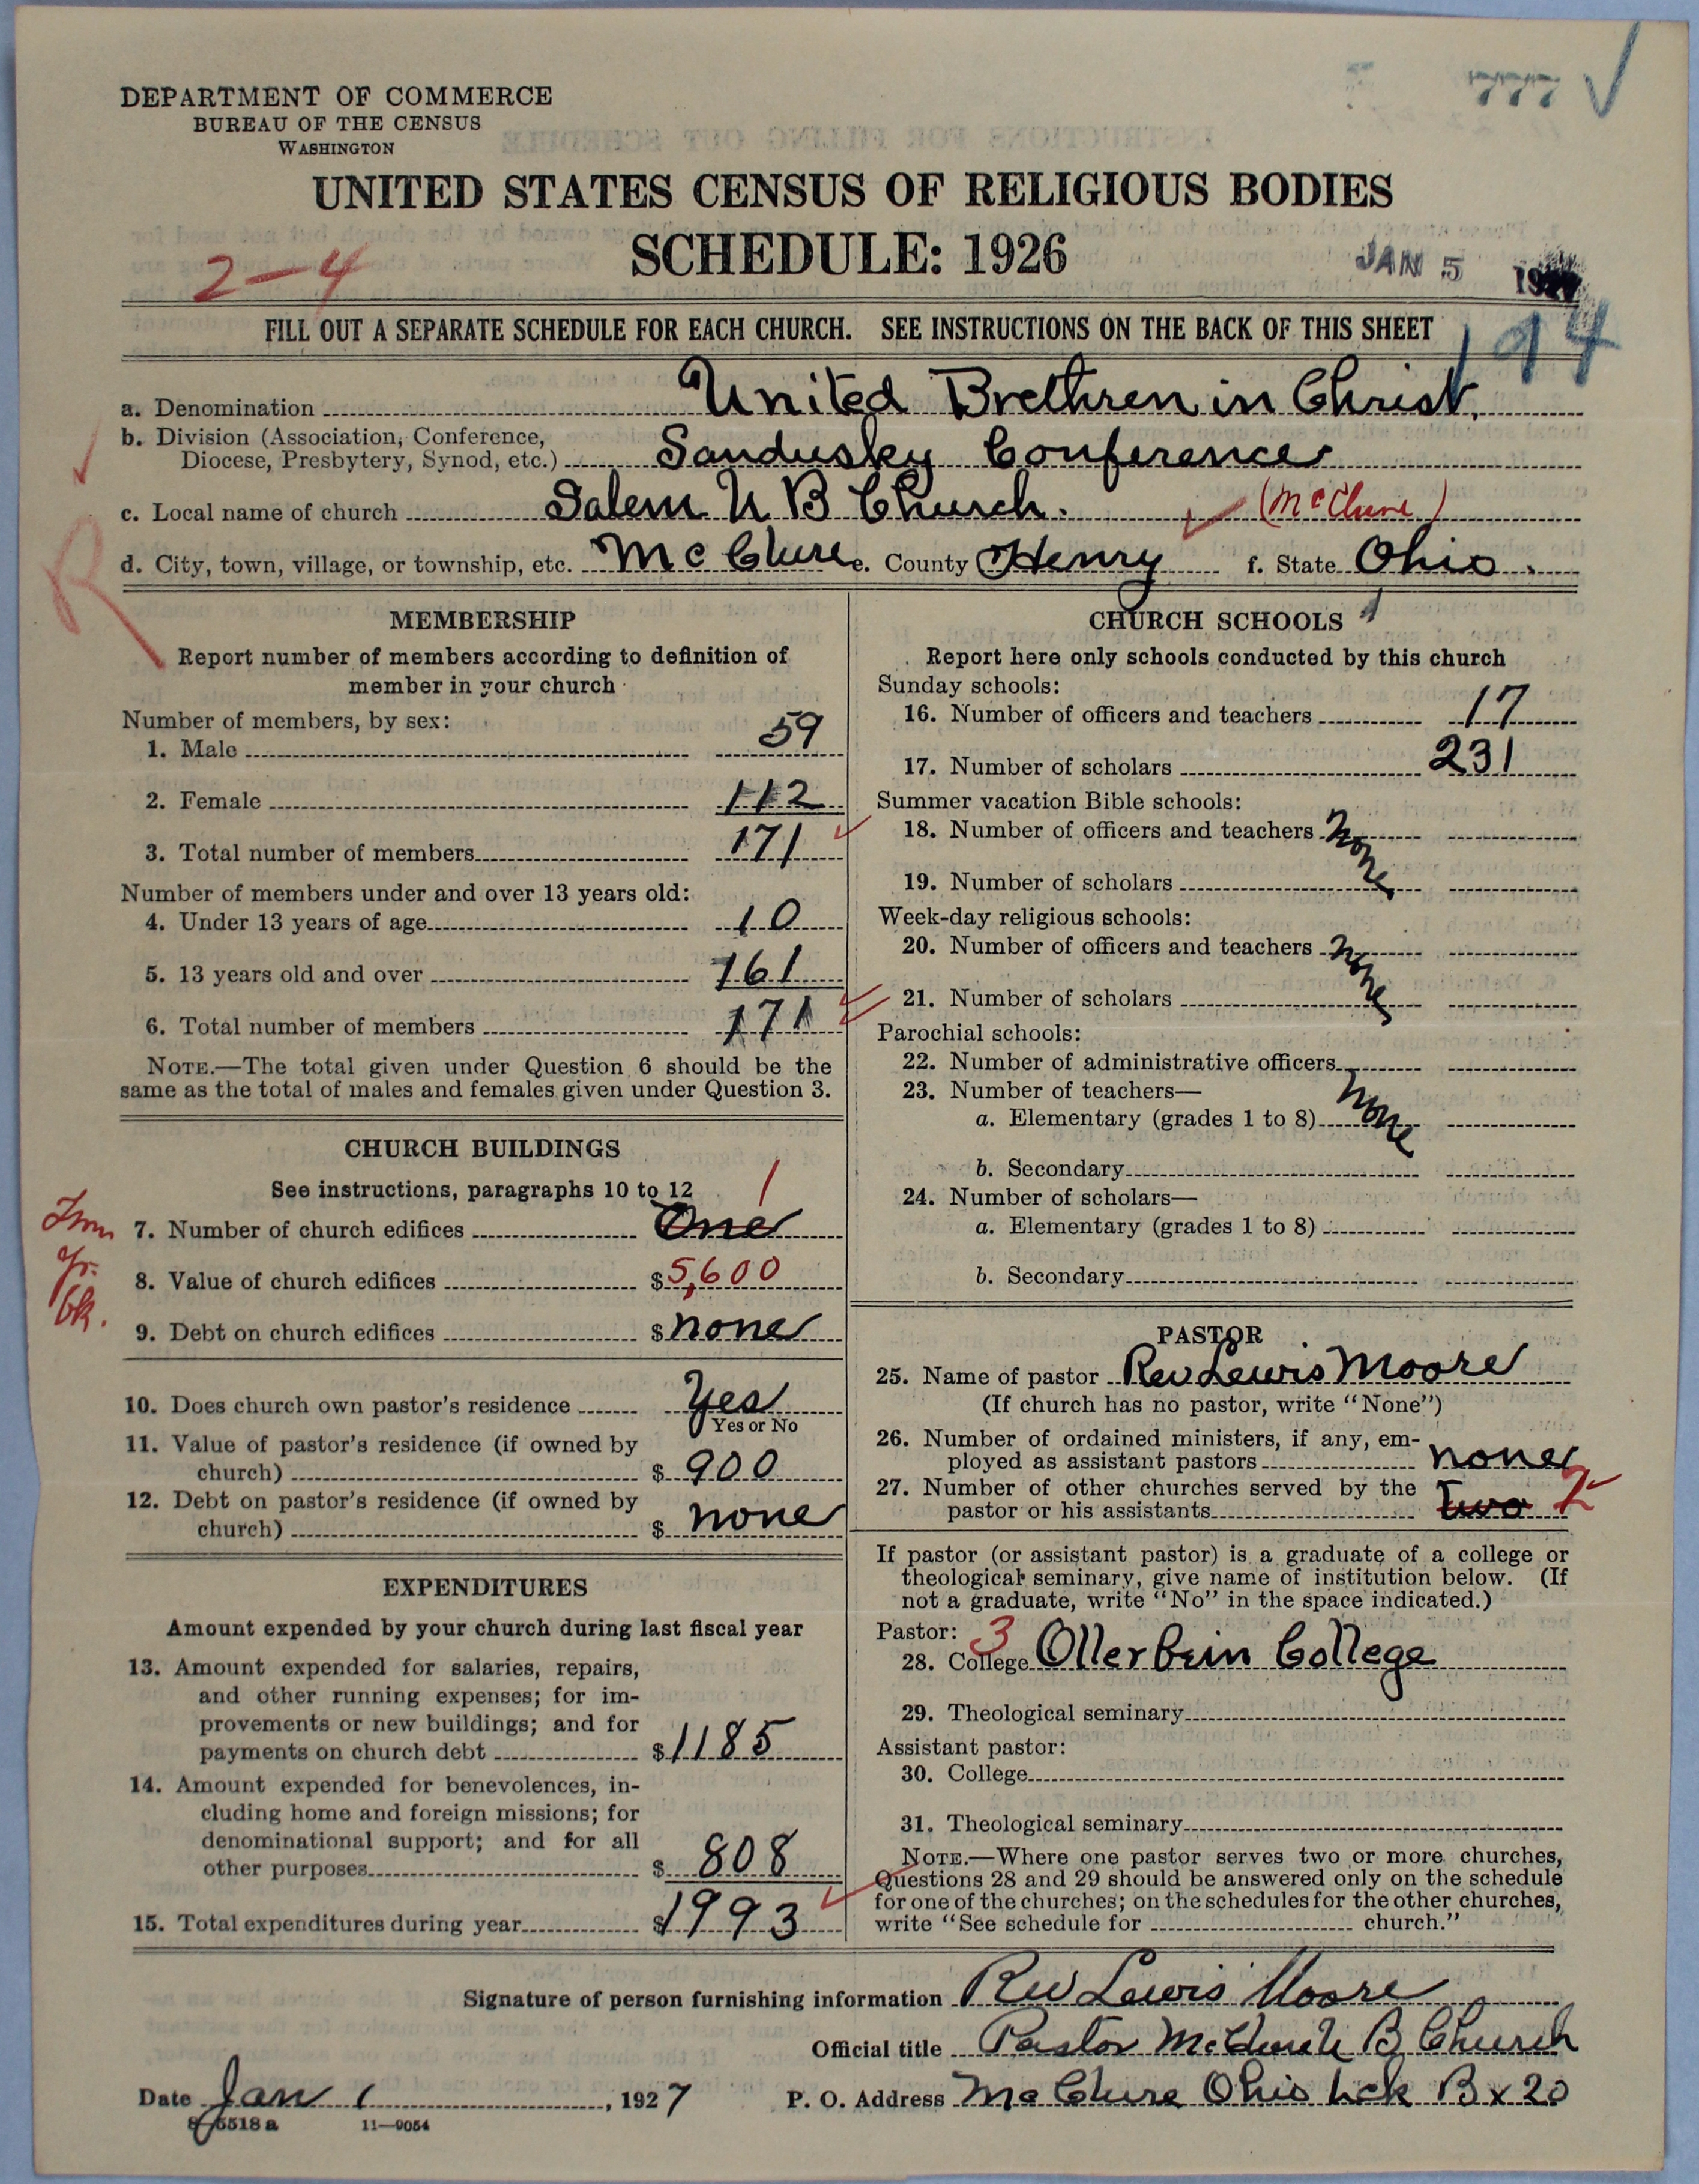 777 ✓
DEPARTMENT OF COMMERCE
BUREAU OF THE CENSUS
WASHINGTON
UNITED STATES CENSUS OF RELIGIOUS BODIES
SCHEDULE: 1926
2-4
JAN 5
FILL OUT A SEPARATE SCHEDULE FOR EACH CHURCH. SEE INSTRUCTIONS ON THE BACK OF THIS SHEET
194
a. Denomination United Brethren in Christ.
b. Division (Association, Conference,
Diocese, Presbytery, Synod, etc.) Sandusky Conference
c. Local name of church Salem U B Church. (McClure)
d. City, town, village, or township, etc. McClure e. County Henry f. State Ohio.
R
MEMBERSHIP
Report number of members according to definition of
member in your church
Number of members, by sex:
1. Male 59
2. Female 112
3. Total number of members 171
Number of members under and over 13 years old:
4. Under 13 years of age 10
5. 13 years old and over 161
6. Total number of members 171
NOTE.—The total given under Question 6 should be the
same as the total of males and females given under Question 3.
CHURCH BUILDINGS
See instructions, paragraphs 10 to 12
1
7. Number of church edifices One
8. Value of church edifices $5,600
yr.
bk.
9. Debt on church edifices $none
10. Does church own pastor's residence Yes
Yes or No
11. Value of pastor's residence (if owned by
church) $ 900
12. Debt on pastor's residence (if owned by
church) $ none
EXPENDITURES
Amount expended by your church during last fiscal year
13. Amount expended for salaries, repairs,
and other running expenses; for im-
provements or new buildings; and for
payments on church debt $1185
14. Amount expended for benevolences, in-
cluding home and foreign missions; for
denominational support; and for all
other purposes $ 808
15. Total expenditures during year $1993
CHURCH SCHOOLS 1
Report here only schools conducted by this church
Sunday schools:
16. Number of officers and teachers 17
17. Number of scholars 231
Summer vacation Bible schools:
18. Number of officers and teachers none
19. Number of scholars
Week-day religious schools:
20. Number of officers and teachers none
21. Number of scholars
Parochial schools:
22. Number of administrative officers none
23. Number of teachers—
a. Elementary (grades 1 to 8)
b. Secondary
24. Number of scholars—
a. Elementary (grades 1 to 8)
b. Secondary
PASTOR
25. Name of pastor Rev Lewis Moore
(If church has no pastor, write "None")
26. Number of ordained ministers, if any, em-
ployed as assistant pastors none
27. Number of other churches served by the
pastor or his assistants Two 2
If pastor (or assistant pastor) is a graduate of a college or
theological seminary, give name of institution below. (If
not a graduate, write "No" in the space indicated.)
Pastor: 3
28. College Otterbein College
29. Theological seminary
Assistant pastor:
30. College
31. Theological seminary
NOTE.—Where one pastor serves two or more churches,
Questions 28 and 29 should be answered only on the schedule
for one of the churches; on the schedules for the other churches,
write "See schedule for church."
Signature of person furnishing information Rev Lewis Moore
Official title Pastor McClure U B Church
Date Jan 1, 1927 P. O. Address McClure Ohio Lck Bx 20
8-5518 a 11-9054